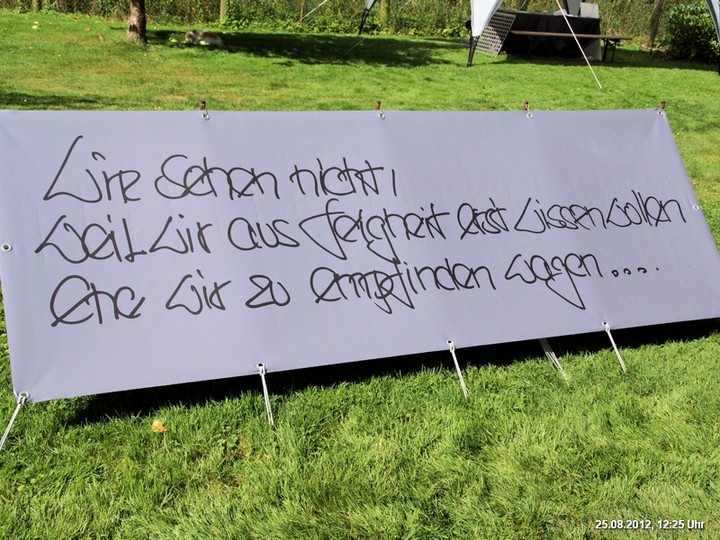 Wir sehen nicht!
weil wir aus feigheit erst wissen wollen
ehe wir zu empfinden wagen....
25.08.2012, 12:25 Uhr